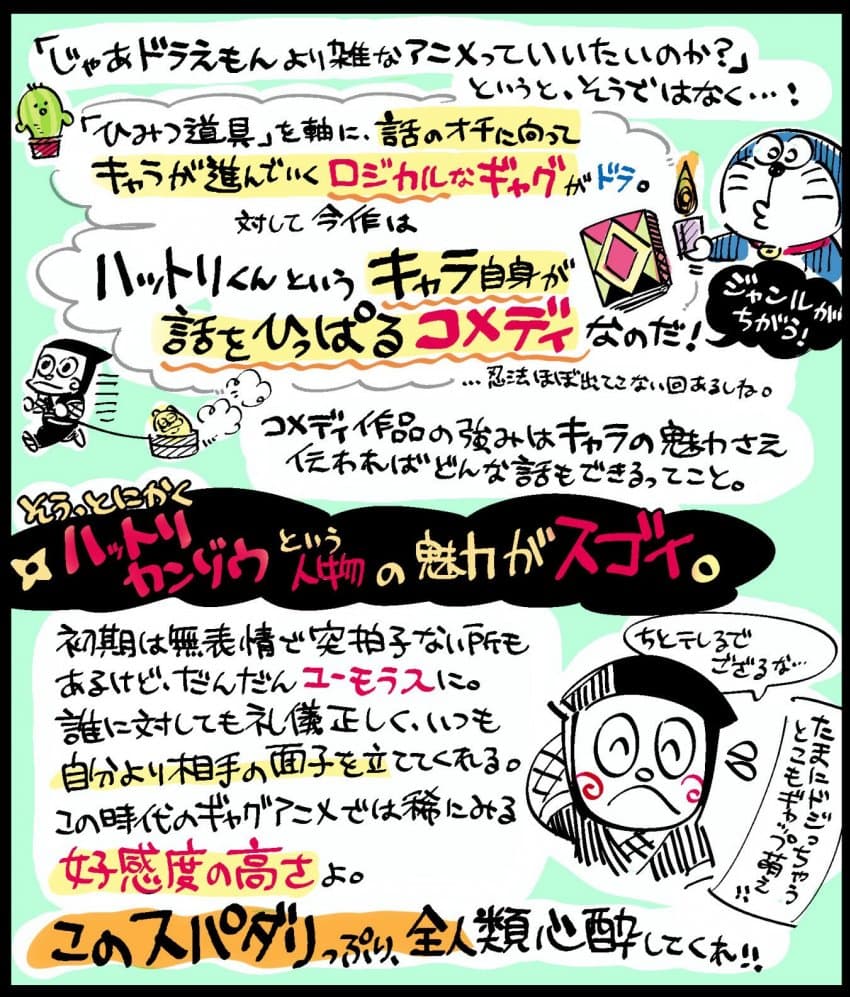 「じゃあドラえもんより雑なアニメっていいたいのか?」
というと、そうではなく…!
「ひみつ道具」を軸に、話のオチに向って
キャラが進んでいくロジカルなギャグがドラ。
対して今作は
ハットリくんというキャラ自身が
話をひっぱるコメディなのだ!
ジャンルが
ちがう!
…忍法ほぼ出てこない回あるしね。
コメディ作品の強みはキャラの魅力さえ
伝わればどんな話もできるってこと。
そうっとにかく
ハットリ
カンゾウという
人物の魅力がスゴイ。
初期は無表情で突拍子ない所も
あるけど、だんだんユーモラスに。
誰に対しても礼儀正しく、いつも
自分より相手の面子を立ててくれる。
この時代のギャグアニメでは稀にみる
好感度の高さよ。
ちとテレるで
ござるな…
たまにドジっちゃう
とこもギャップ萌え!!
このスパダリっぷり、全人類心酔してくれ!!